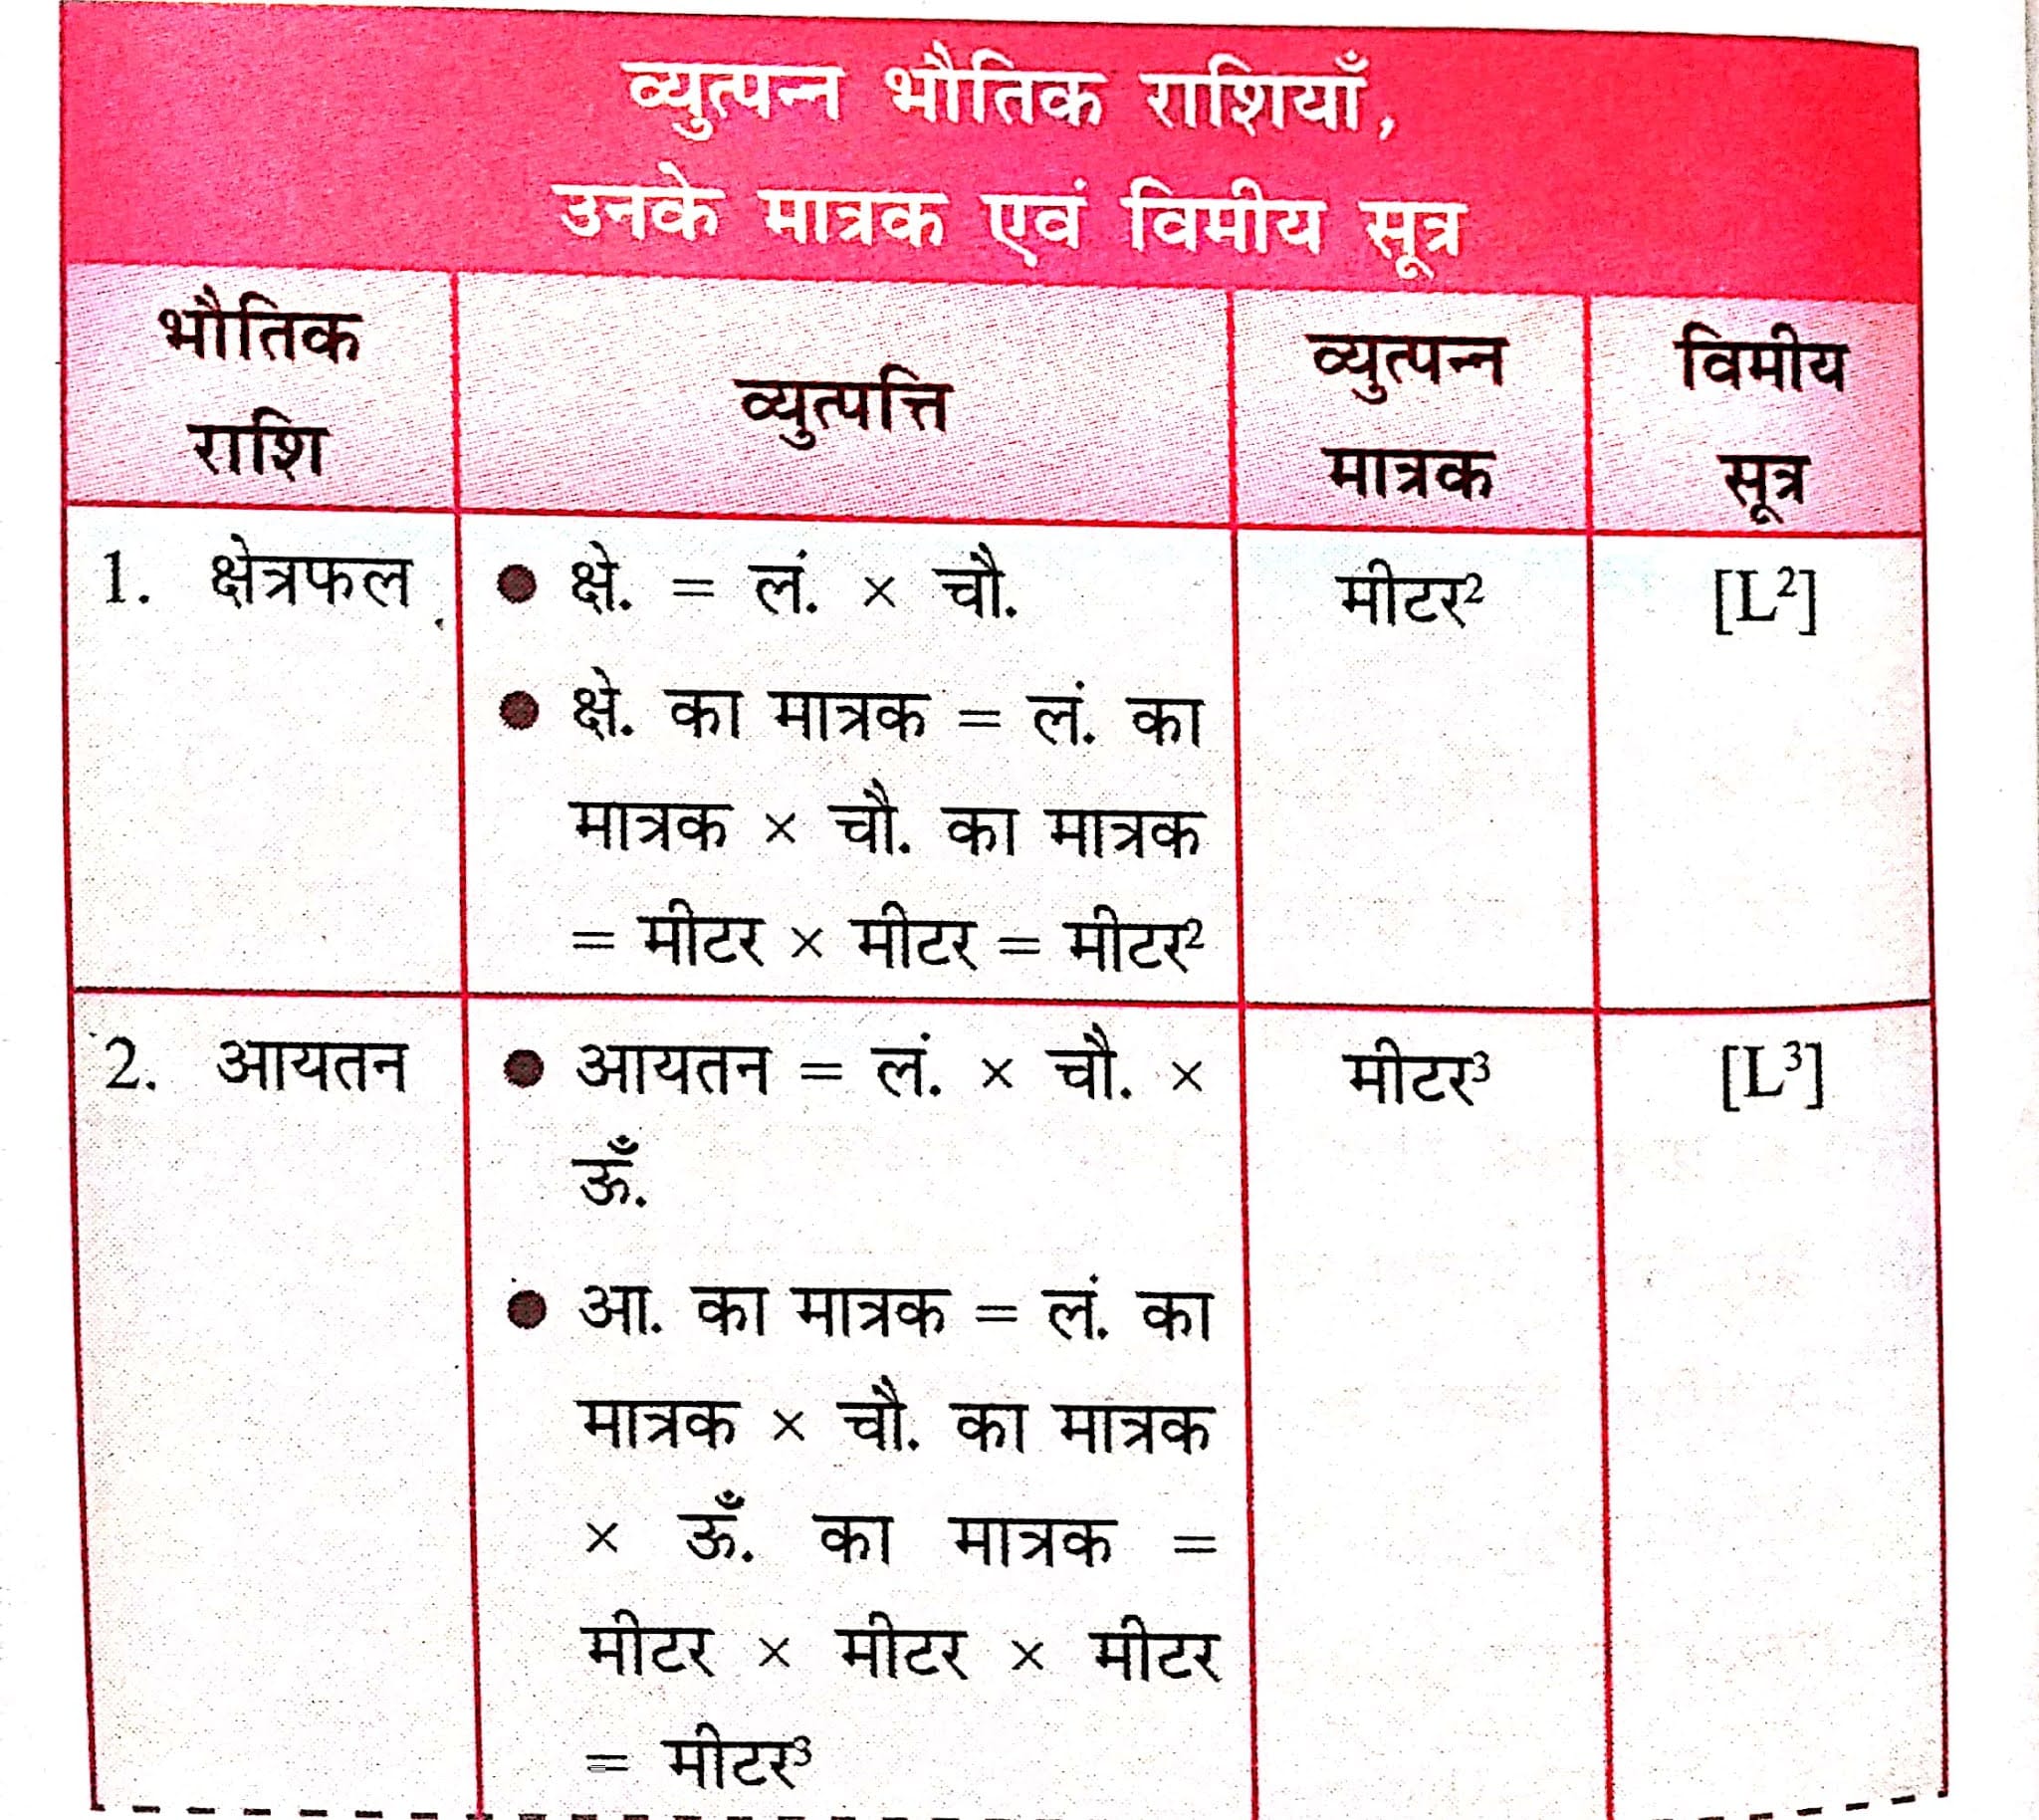 व्युत्पन्न भौतिक राशियाँ,
उनके मात्रक एवं विमीय सूत्र
भौतिक
राशि
व्युत्पत्ति
व्युत्पन्न
मात्रक
विमीय
सूत्र
1. क्षेत्रफल
● क्षे. = लं. × चौ.
● क्षे. का मात्रक = लं. का
मात्रक × चौ. का मात्रक
= मीटर × मीटर = मीटर²
मीटर²
[L²]
2. आयतन
● आयतन = लं. × चौ. ×
ऊँ.
● आ. का मात्रक = लं. का
मात्रक × चौ. का मात्रक
× ऊँ. का मात्रक =
मीटर × मीटर × मीटर
= मीटर³
मीटर³
[L³]